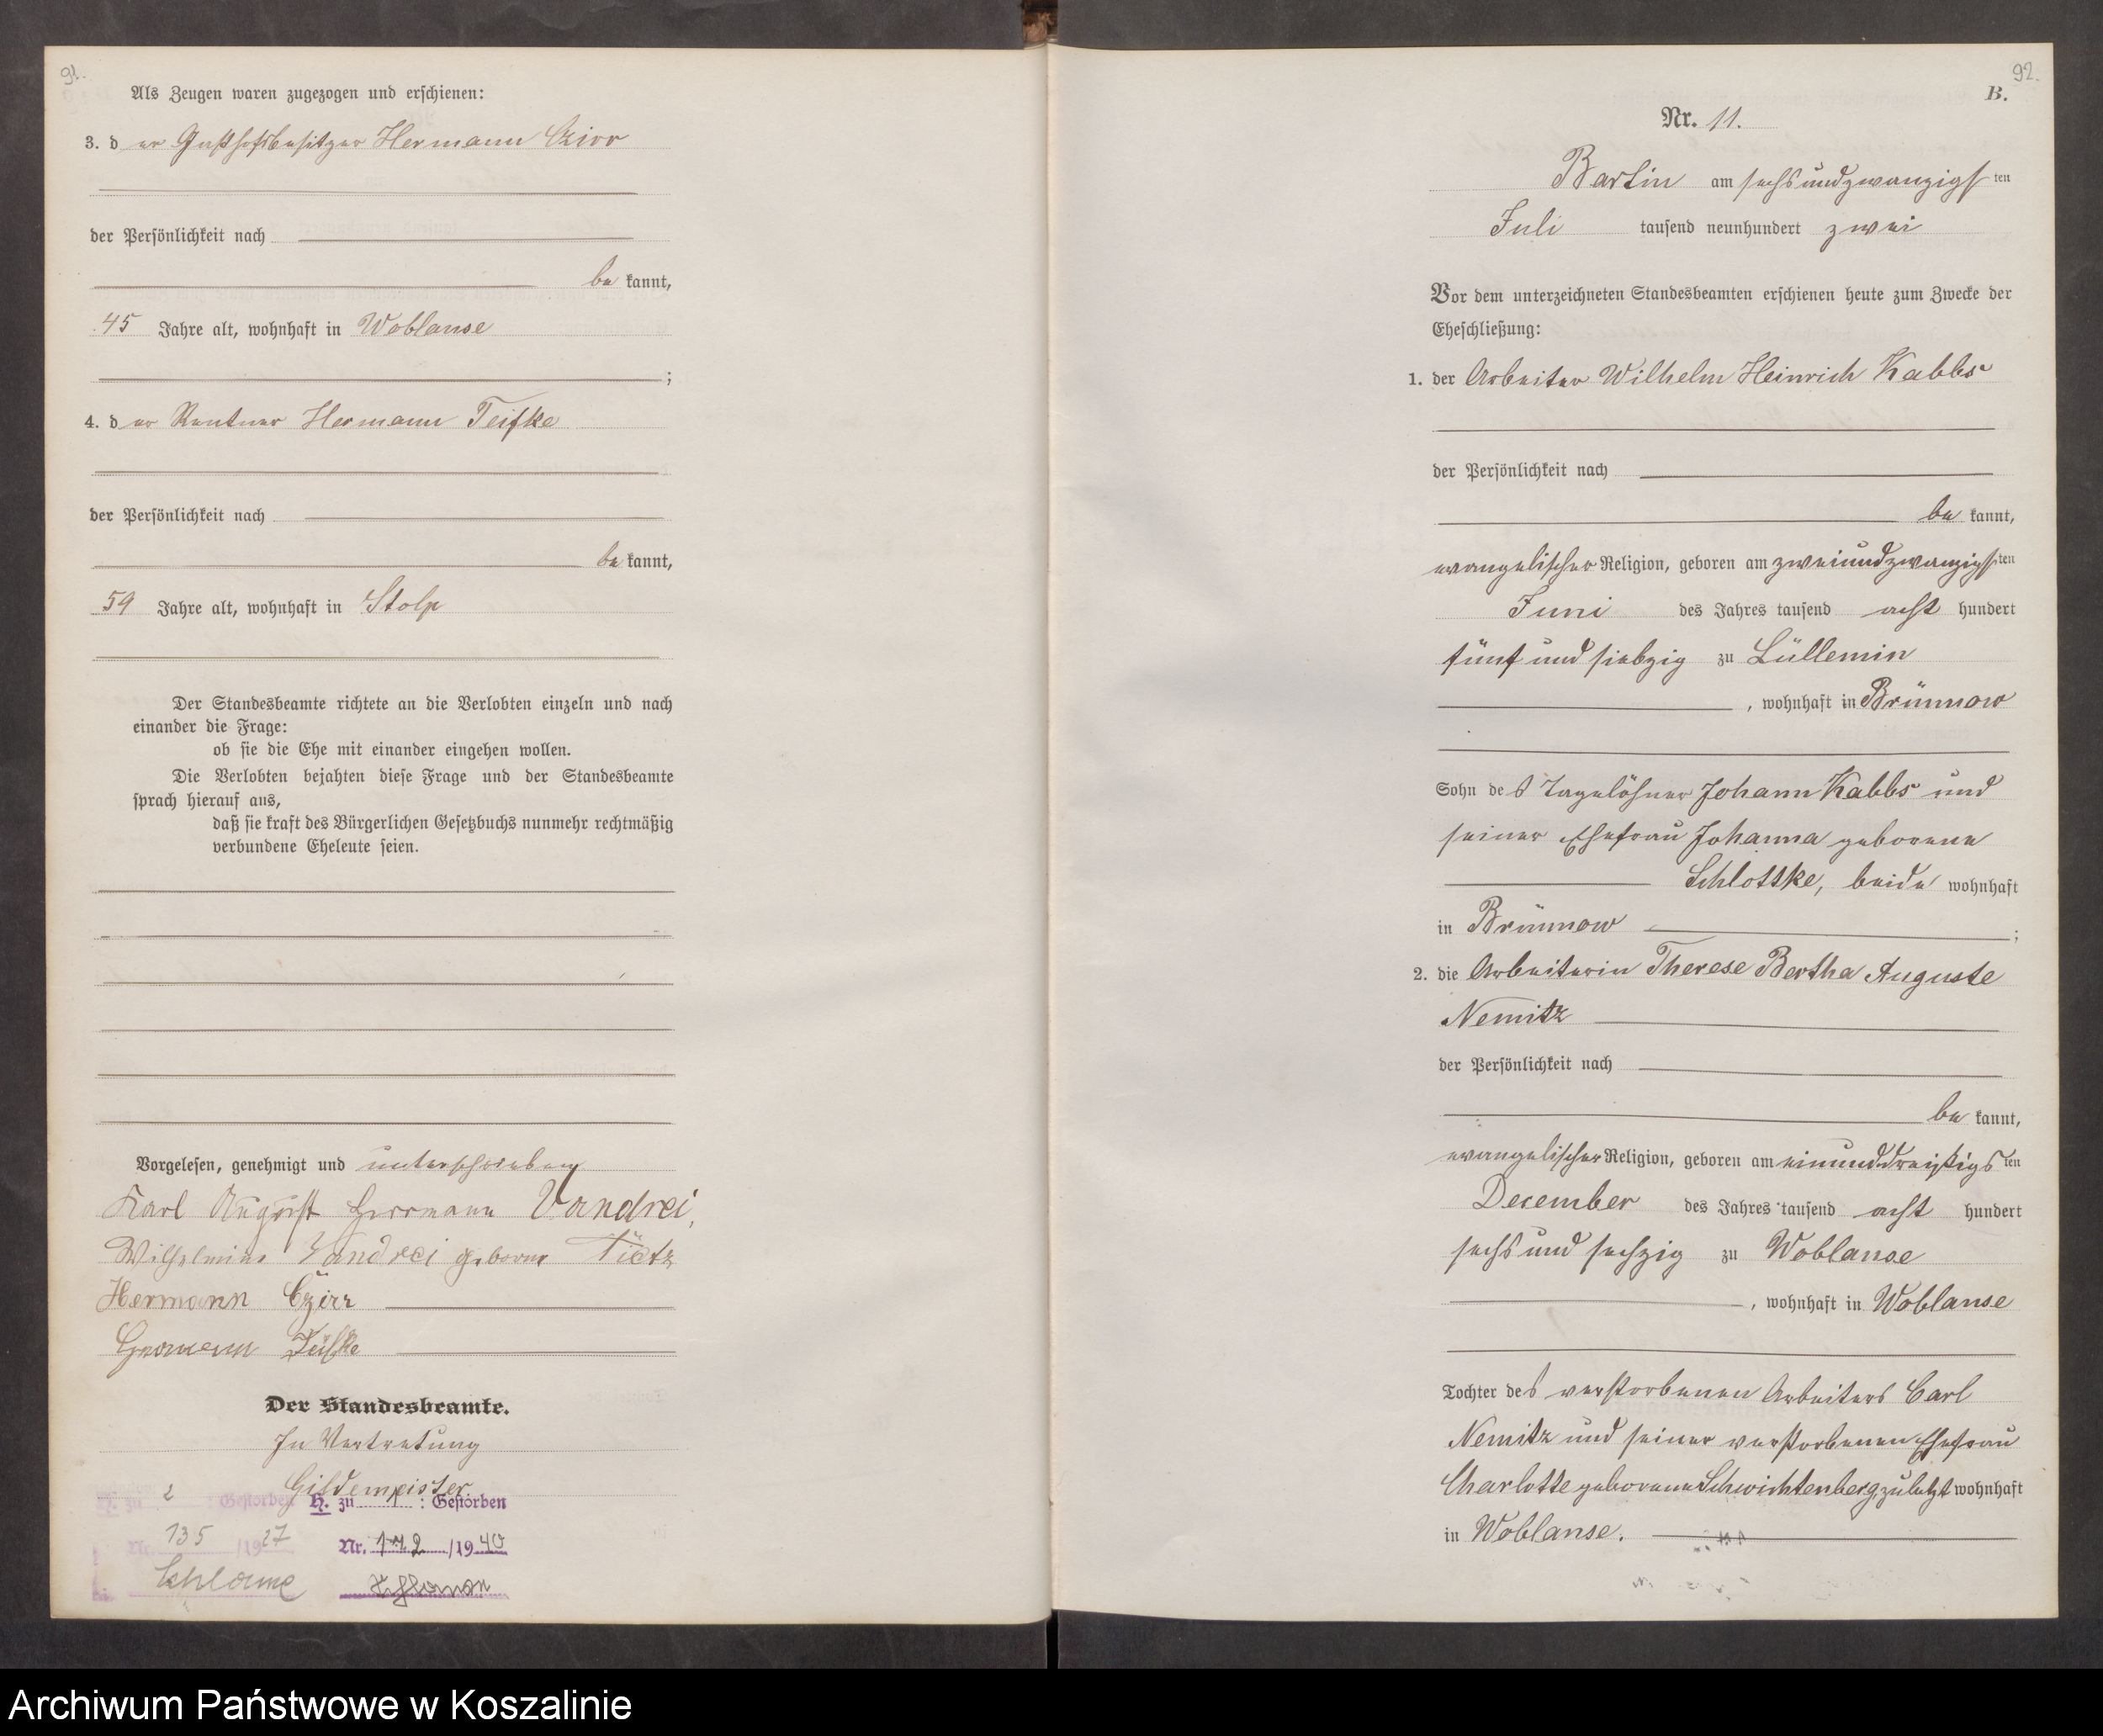 91.
Als Zeugen waren zugezogen und erschienen:
3. der Gasthofsbesitzer Hermann Czirr
der Persönlichkeit nach
be kannt,
45 Jahre alt, wohnhaft in Woblanse
;
4. der Rentner Hermann Teifke
der Persönlichkeit nach
be kannt,
59 Jahre alt, wohnhaft in Stolp
Der Standesbeamte richtete an die Verlobten einzeln und nach
einander die Frage:
ob sie die Ehe mit einander eingehen wollen.
Die Verlobten bejahten diese Frage und der Standesbeamte
sprach hierauf aus,
daß sie kraft des Bürgerlichen Gesetzbuchs nunmehr rechtmäßig
verbundene Eheleute seien.
Vorgelesen, genehmigt und unterschrieben
Karl August Herrmann Vandrei,
Wilhelmine Vandrei geborne Tietz
Hermann Czirr
Hermann Teifke
Der Standesbeamte.
In Vertretung
Gildemeister
H. zu 2 : Gestorben
Nr. 135 /1927
Schlawe
H. zu 1 : Gestorben
Nr. 172 /1940
92.
B.
Nr. 11.
Bartin am sechsundzwanzigsten
Juli tausend neunhundert zwei
Vor dem unterzeichneten Standesbeamten erschienen heute zum Zwecke der
Eheschließung:
1. der Arbeiter Wilhelm Heinrich Kabbs
der Persönlichkeit nach
be kannt,
evangelischer Religion, geboren am zweiundzwanzigsten
Juni des Jahres tausend acht hundert
fünf und siebzig zu Lüllemin
, wohnhaft in Brünnow
Sohn des Tagelöhner Johann Kabbs und
seiner Ehefrau Johanna geborene
Schlottke, beide wohnhaft
in Brünnow ;
2. die Arbeiterin Therese Bertha Auguste
Nemitz
der Persönlichkeit nach
be kannt,
evangelischer Religion, geboren am einunddreißigsten
December des Jahres tausend acht hundert
sechs und sechzig zu Woblanse
, wohnhaft in Woblanse
Tochter des verstorbenen Arbeiters Carl
Nemitz und seiner verstorbenen Ehefrau
Charlotte geborene Schwichtenberg, zuletzt wohnhaft
in Woblanse.
Archiwum Państwowe w Koszalinie